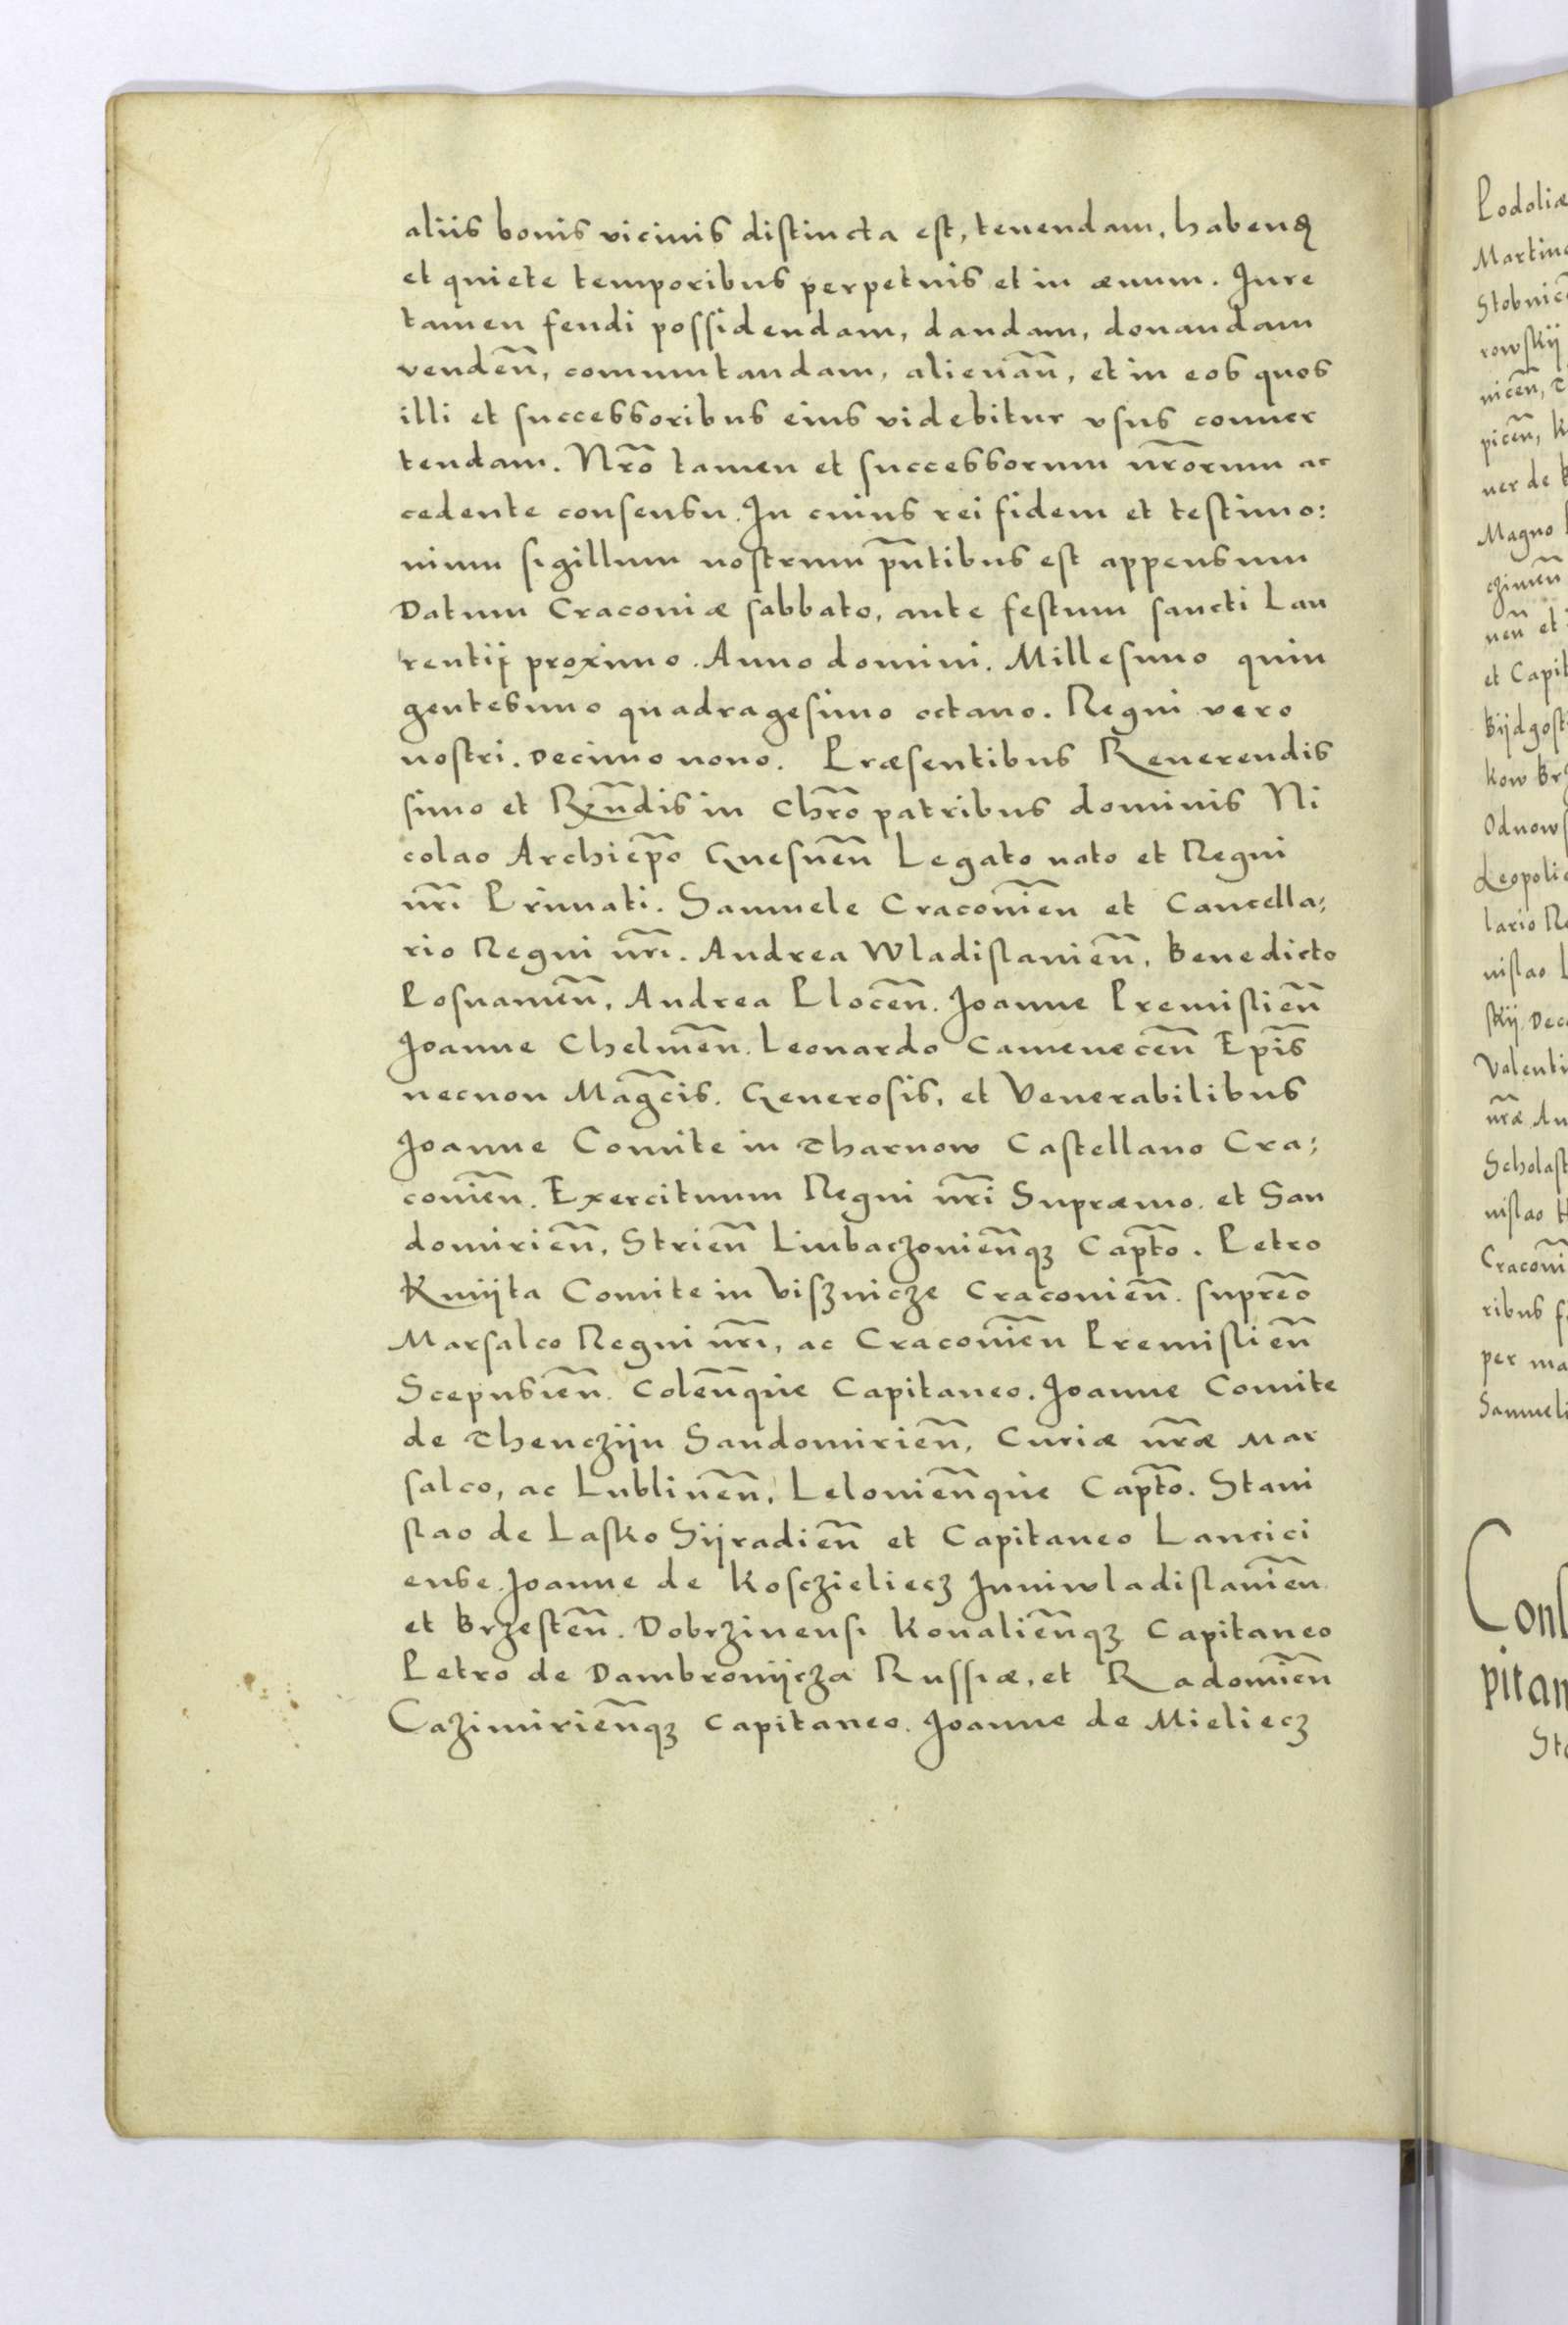 aliis bonis vicinis distincta est, tenendam, habenđ
et quiete temporibus perpetuis et in æuum. Jure
tamen feudi possidendam, dandam, donandam
vendeñ, commutandam, alienañ, et in eos quos
illi et successoribus eius videbitur vsus conuer
tendam. Nr̃o tamen et successorum nr̃orum ac
cedente consensu. In cuius rei fidem et testimo:
nium sigillum nostrum p̃ntibus est appensum
Datum Cracouiæ sabbato, ante festum sancti Lau
rentij proximo. Anno domini. Millesimo quin
gentesimo quadragesimo octauo. Regni vero
nostri. Decimo nono. Præsentibus Reuerendis
simo et Rx̃ndis in Chr̃o patribus dominis Ni
colao Archiep̃o Gnesneñ Legato nato et Regni
nr̃i Primati. Samuele Cracouieñ et Cancella;
rio Regni nr̃i. Andrea Wladislauieñ, Benedicto
Posnanieñ, Andrea Ploceñ. Joanne Premislieñ
Joanne Chelmeñ. Leonardo Cameneceñ Ep̃is
necnon Mag̃cis. Generosis, et Venerabilibus
Joanne Comite in Tharnow Castellano Cra;
couieñ. Exercituum Regni nr̃i Supræmo. et San
domirieñ, Strieñ Liubaczouieñqȝ Capt̃o. Petro
Kmijta Comite in Visznicze Cracouieñ. supr̃eo
Marsalco Regni nr̃i, ac Cracouieñ Premislieñ
Scepusieñ. Coleñque Capitaneo. Joanne Comite
de Thenczijn Sandomirieñ, Curiæ nr̃æ Mar
salco, ac Lublineñ, Lelouieñque Capt̃o. Stani
slao de Lasko Sijradieñ et Capitaneo Lancici
ense. Joanne de Kosczieliecz Juniwladislauieñ.
et Brzesteñ. Dobrzinensi Konalieñqȝ Capitaneo
Petro de Dambrouijcza Russiæ, et Radomieñ
Cazimirieñqȝ Capitaneo. Joanne de Mieliecz
Podoliæ
Stobnic
rowskij
niceñ,
piceñ,
uer de
Magno
czimeñ
neñ et
kow
Leopoli
lario
nislao
skij. Dec
Valenti
nr̃æ An
Scholast
nislao
Cracoui
ribus
per ma
Samueli
Cons
pitan
Sta